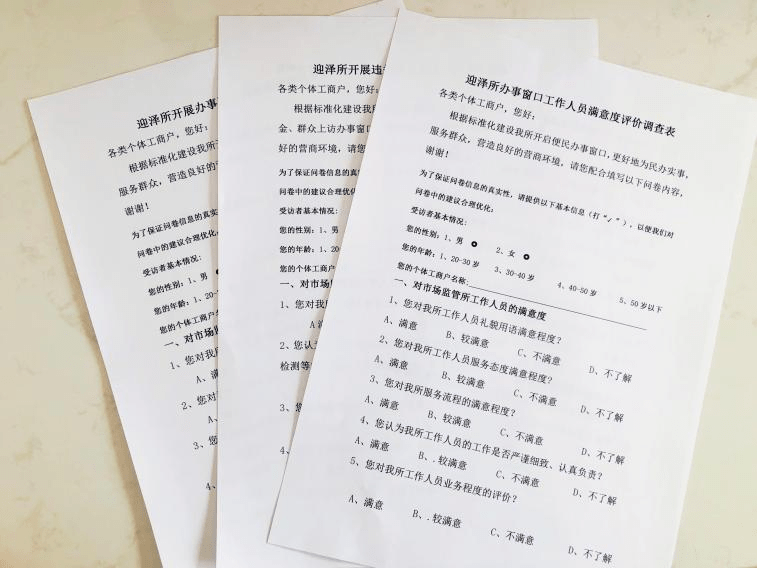 迎泽所开展办事
各类个体工商户，您好：
根据标准化建设我所开
服务群众，营造良好的营
谢谢！
为了保证问卷信息的真实
问卷中的建议合理优化。
受访者基本情况：
您的性别：1、男
您的年龄：1、20-
您的个体工商户名
一、对市场监
1、您对我所
A、满
2、您对
A、
3、您
4、
迎泽所开展违
各类个体工商户，您好：
根据标准化建设我所
金、群众上访办事窗口
好的营商环境，请您
为了保证问卷信息的真实
问卷中的建议合理优化
受访者基本情况：
您的性别：1、男
您的年龄：1、20
您的个体工商户
一、对市场监
1、您对我所
A满意
2、您认为
检测等
3、您
4、
迎泽所办事窗口工作人员满意度评价调查表
各类个体工商户，您好：
根据标准化建设我所开启便民办事窗口，更好地为民办实事，
服务群众，营造良好的营商环境，请您配合填写以下问卷内容，
谢谢！
为了保证问卷信息的真实性，请提供以下基本信息（打“√”），以便我们对
问卷中的建议合理优化：
受访者基本情况：
您的性别：1、男 2、女
您的年龄：1、20-30岁 3、30-40岁 4、40-50岁 5、50岁以下
您的个体工商户名称：
一、对市场监管所工作人员的满意度
1、您对我所工作人员礼貌用语满意程度？
A、满意 B、较满意 C、不满意 D、不了解
2、您对我所工作人员服务态度满意程度？
A、满意 B、较满意 C、不满意 D、不了解
3、您对我所服务流程的满意程度？
A、满意 B、较满意 C、不满意 D、不了解
4、您认为我所工作人员的工作是否严谨细致、认真负责？
A、满意 B、.较满意 C、不满意 D、不了解
5、您对我所工作人员业务程度的评价？
A、满意 B、.较满意 C、不满意 D、不了解